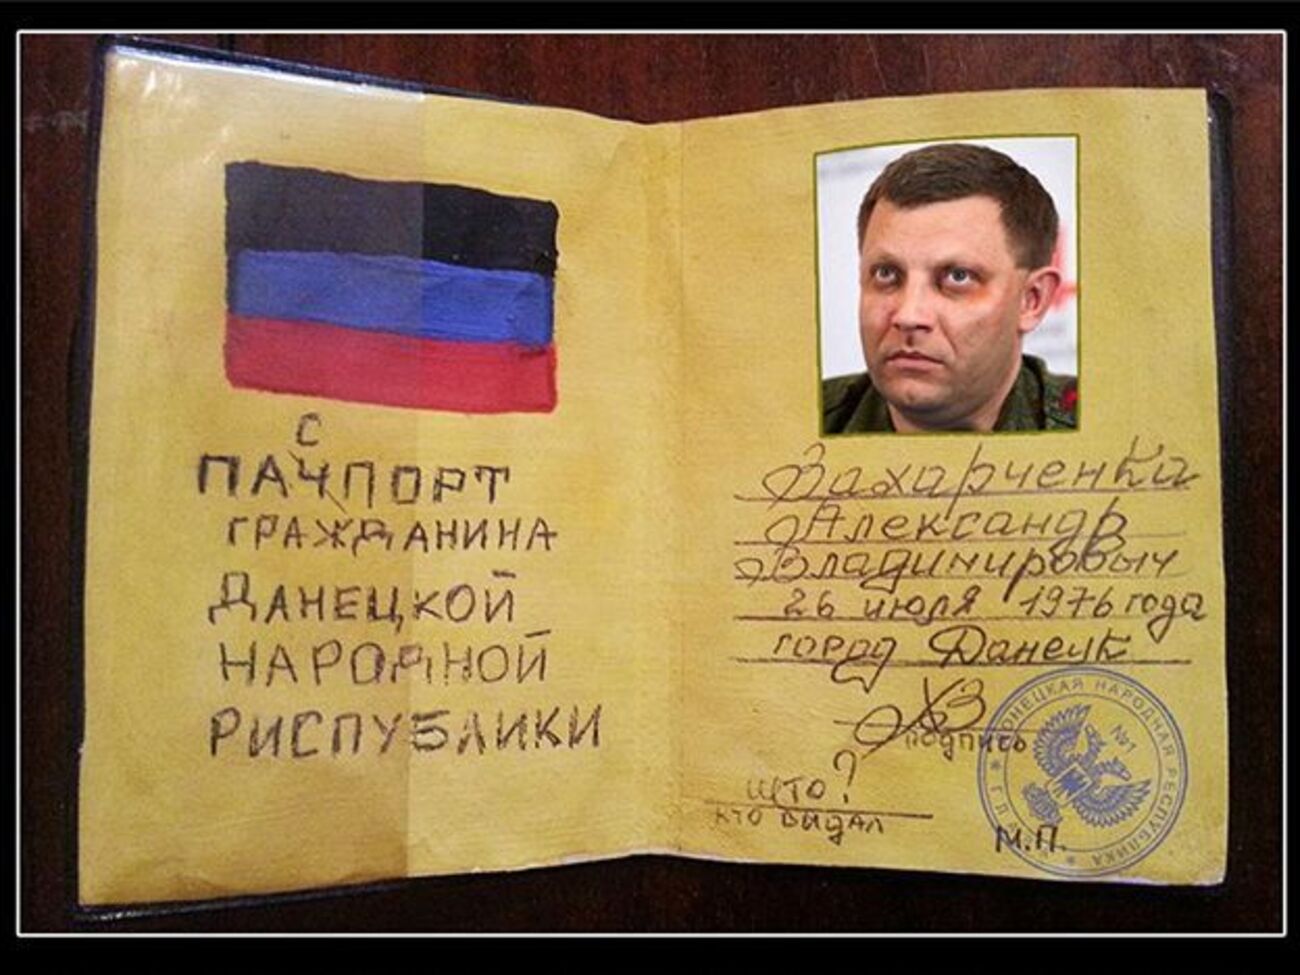 С
ПАЧПОРТ
ГРАЖДАНИНА
ДАНЕЦКОЙ
НАРОДНОЙ
РИСПУБЛИКИ
Захарченка
Александр
Владимировыч
26 июля 1976 года
город Данецк
ХЗ
подпись
што?
кто выдал
ДОНЕЦКАЯ НАРОДНАЯ РЕСПУБЛИКА * ГЛАВА *
№1
М.П.